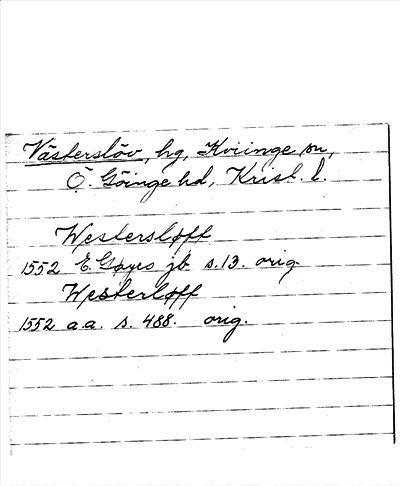 Västerslöv, hg, Kviinge sn,
Ö. Göinge hd, Krist. l.
Westersløff
1552 E.Gøyes jb s.13. orig.
Westerløff
1552 a.a. s. 488. orig.